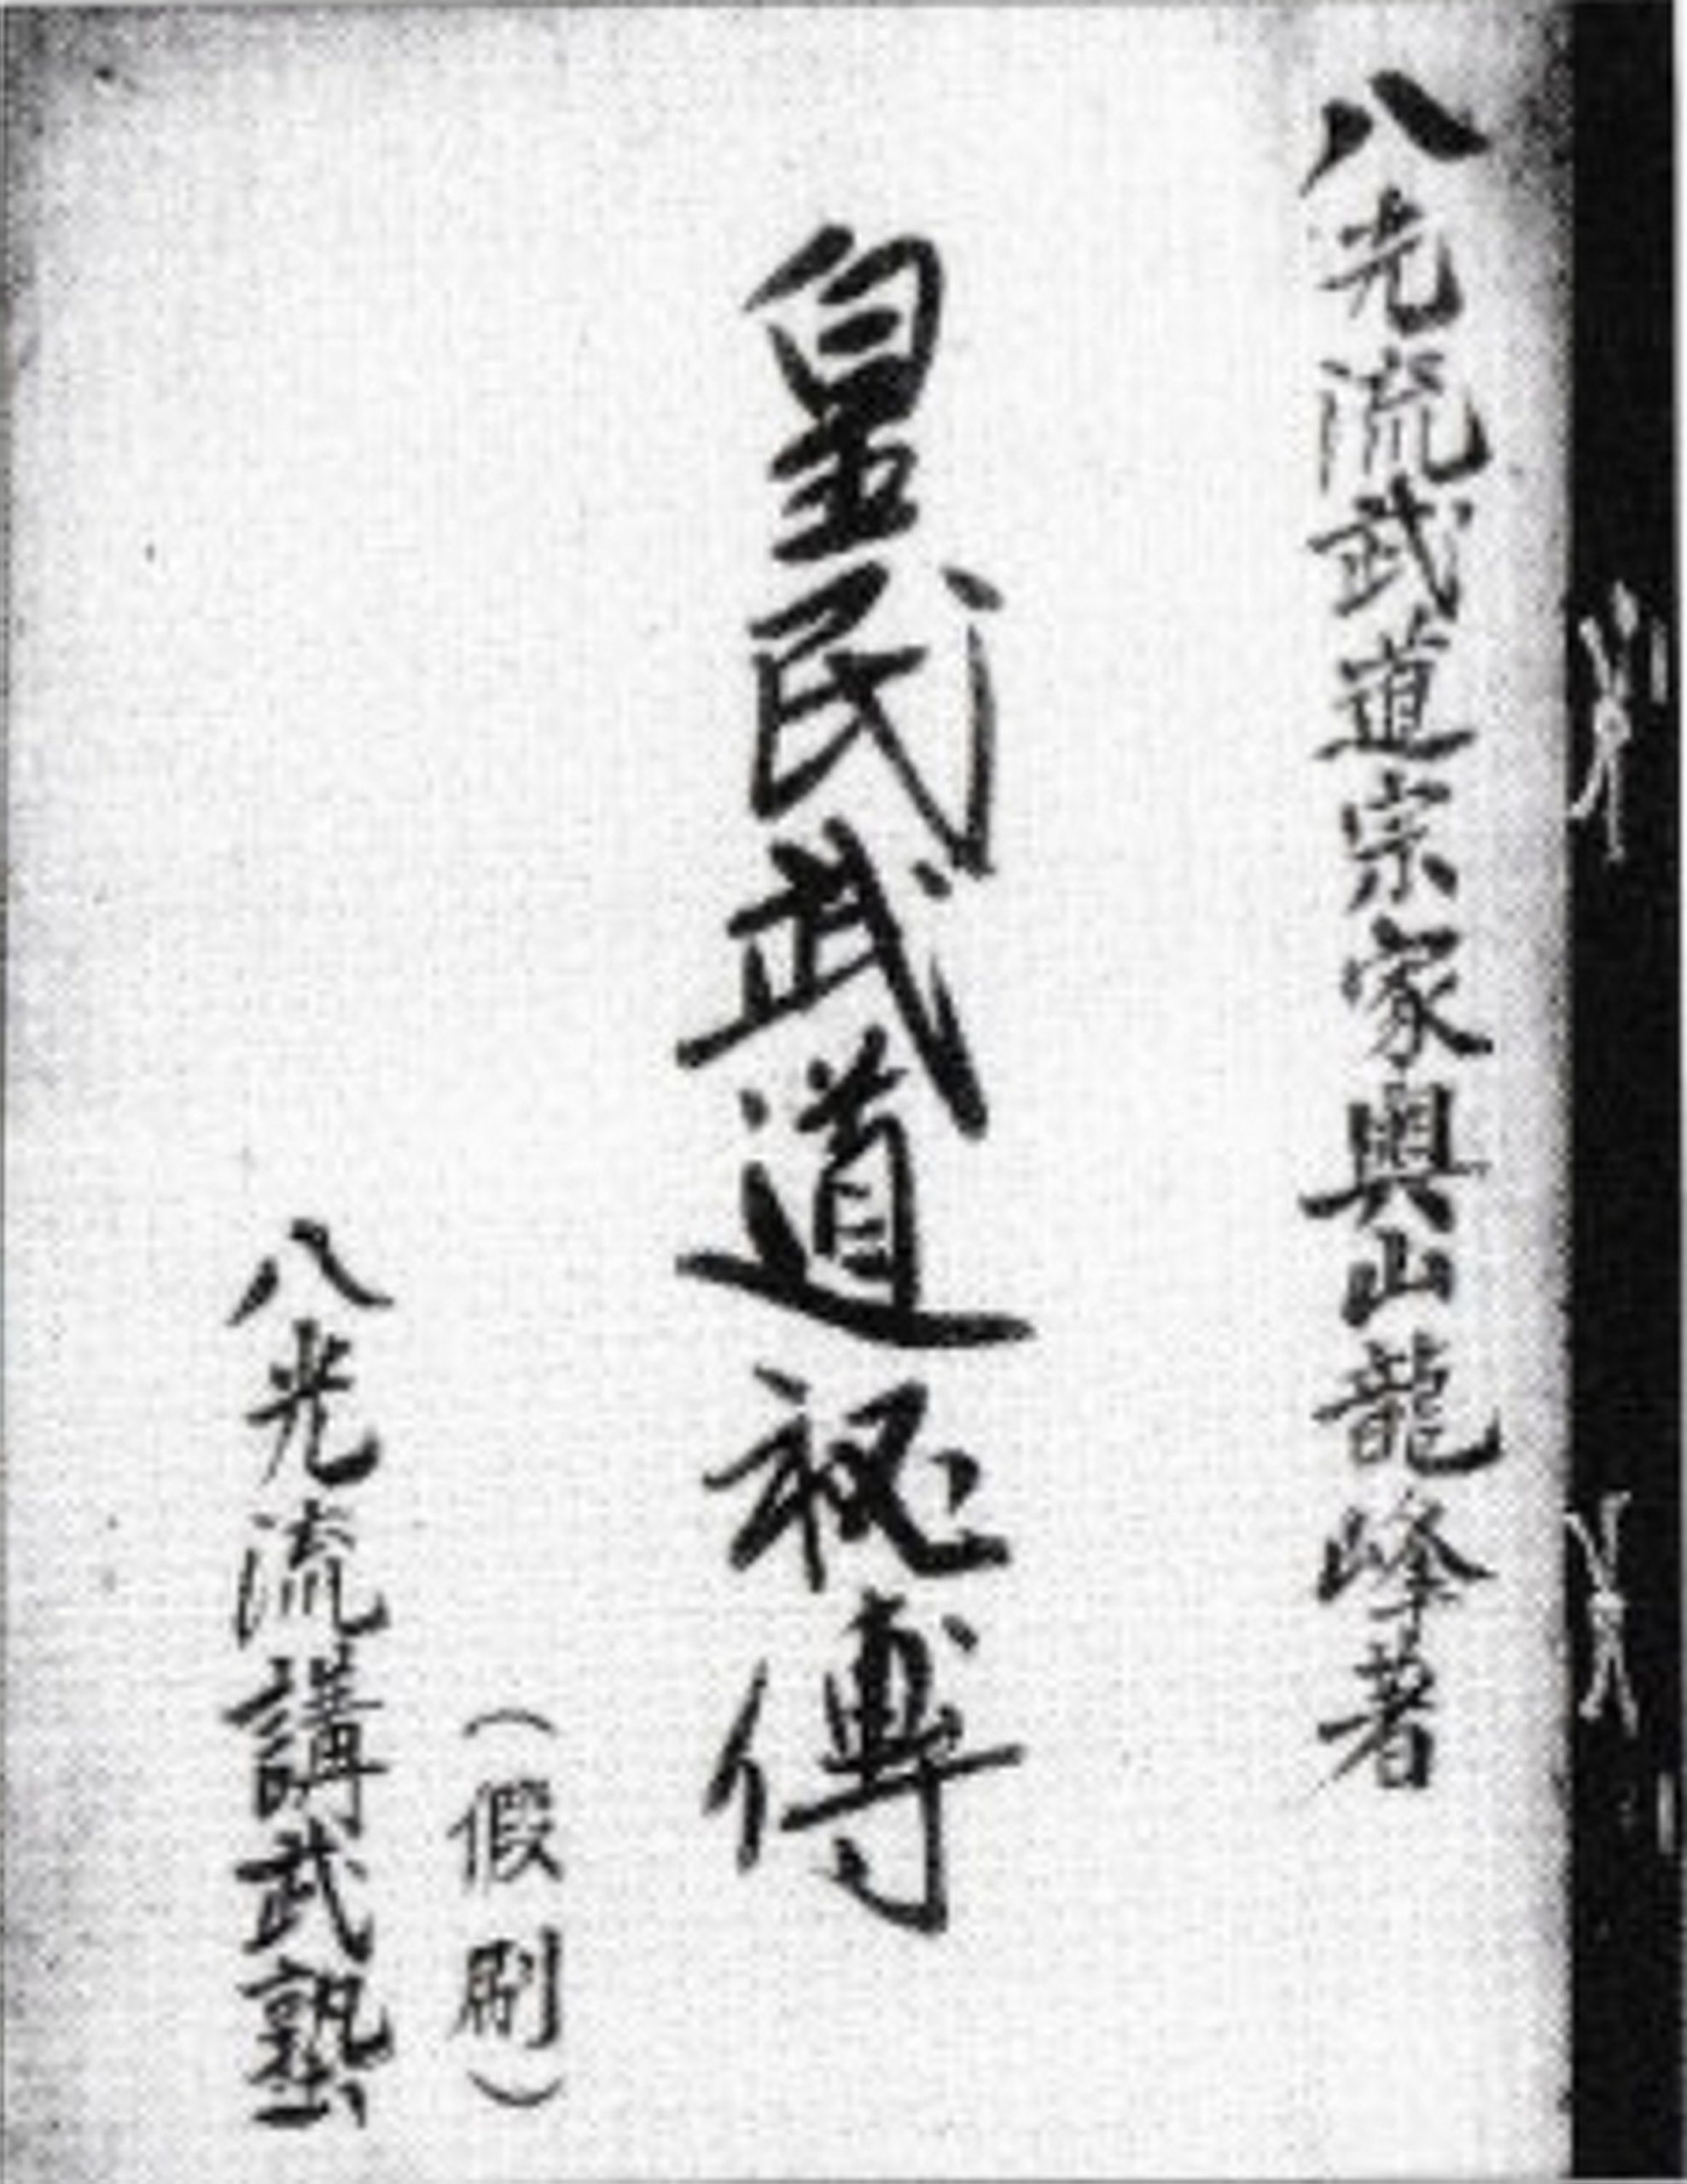 八光流武道宗家奥山龍峰著
皇民武道祕傳
（假刷）
八光流講武塾